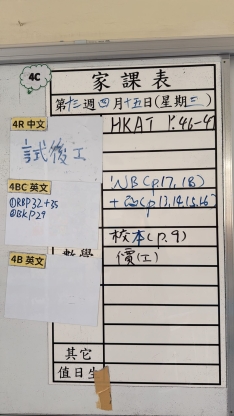 4C
家課表
第十三週四月十五日(星期三)
4R 中文
HKAT P.46-47
試後工
4BC 英文
①RBP32+35
②BKP29
WB(p.17,18)
校本(p.9)
4B 英文
數學
價(工)
其它
值日生